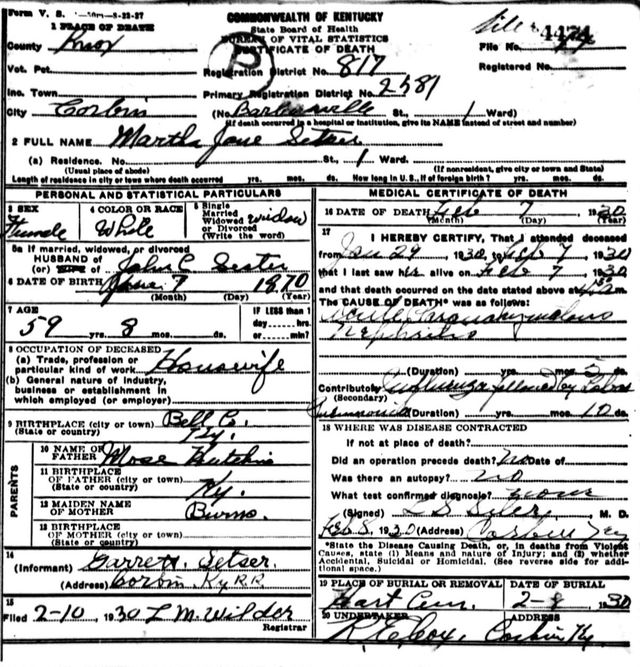 Form V. S.
COMMONWEALTH OF KENTUCKY
State Board of Health
BUREAU OF VITAL STATISTICS
CERTIFICATE OF DEATH
1 PLACE OF DEATH
County Knox
File No.
Vot. Pct.
Registration District No. 817
Registered No.
Inc. Town
Primary Registration District No. 2581
City Corbin
(No. Barbourville St., 1 Ward)
(If death occurred in a hospital or institution, give its NAME instead of street and number)
2 FULL NAME Martha Jane Setser
(a) Residence. No. St., 1 Ward.
(Usual place of abode) (If nonresident, give city or town and State)
Length of residence in city or town where death occurred yrs. mos. ds. How long in U. S., if of foreign birth? yrs. mos. ds.
PERSONAL AND STATISTICAL PARTICULARS
3 SEX
Female
4 COLOR OR RACE
White
5 Single
Married
Widowed widow
or Divorced
(Write the word)
5a If married, widowed, or divorced
HUSBAND of
(or) WIFE of John C Setser
6 DATE OF BIRTH June 7 1870
(Month) (Day) (Year)
7 AGE
59 yrs. 8 mos. ds.
IF LESS than 1
day hrs.
or min.
8 OCCUPATION OF DECEASED
(a) Trade, profession or
particular kind of work Housewife
(b) General nature of industry,
business or establishment in
which employed (or employer)
9 BIRTHPLACE (city or town) Bell Co.
(State or country) Ky.
PARENTS
10 NAME OF
FATHER Mose
11 BIRTHPLACE
OF FATHER (city or town)
(State or country) Ky.
12 MAIDEN NAME
OF MOTHER Burns
13 BIRTHPLACE
OF MOTHER (city or town)
(State or country)
14
(Informant) Garrett Setser
(Address) Corbin Ky R.R.
15
Filed 2-10, 1930 L M Wilder
Registrar
MEDICAL CERTIFICATE OF DEATH
16 DATE OF DEATH Feb 7 1930
(Month) (Day) (Year)
17
I HEREBY CERTIFY, That I attended deceased
from Jan 29 1930, to Feb 7, 1930
that I last saw her alive on Feb 7 1930
and that death occurred on the date stated above at m.
The CAUSE OF DEATH* was as follows:
acute Paranchymatous
Nephritis
(Duration) yrs. mos. ds.
Contributory Influenza followed by Lobar
(Secondary)
Pneumonia (Duration) yrs. mos. 10 ds.
18 WHERE WAS DISEASE CONTRACTED
If not at place of death?
Did an operation precede death? no Date of
Was there an autopsy? no
What test confirmed diagnosis?
(Signed) M. D.
Feb 8, 1930 (Address) Corbin Ky
*State the Disease Causing Death, or, in deaths from Violent
Causes, state (1) Means and nature of Injury; and (2) whether
Accidental, Suicidal or Homicidal. (See reverse side for addi-
tional space.)
19 PLACE OF BURIAL OR REMOVAL
Hart Cem.
DATE OF BURIAL
2-8 1930
20 UNDERTAKER
ADDRESS
Corbin Ky